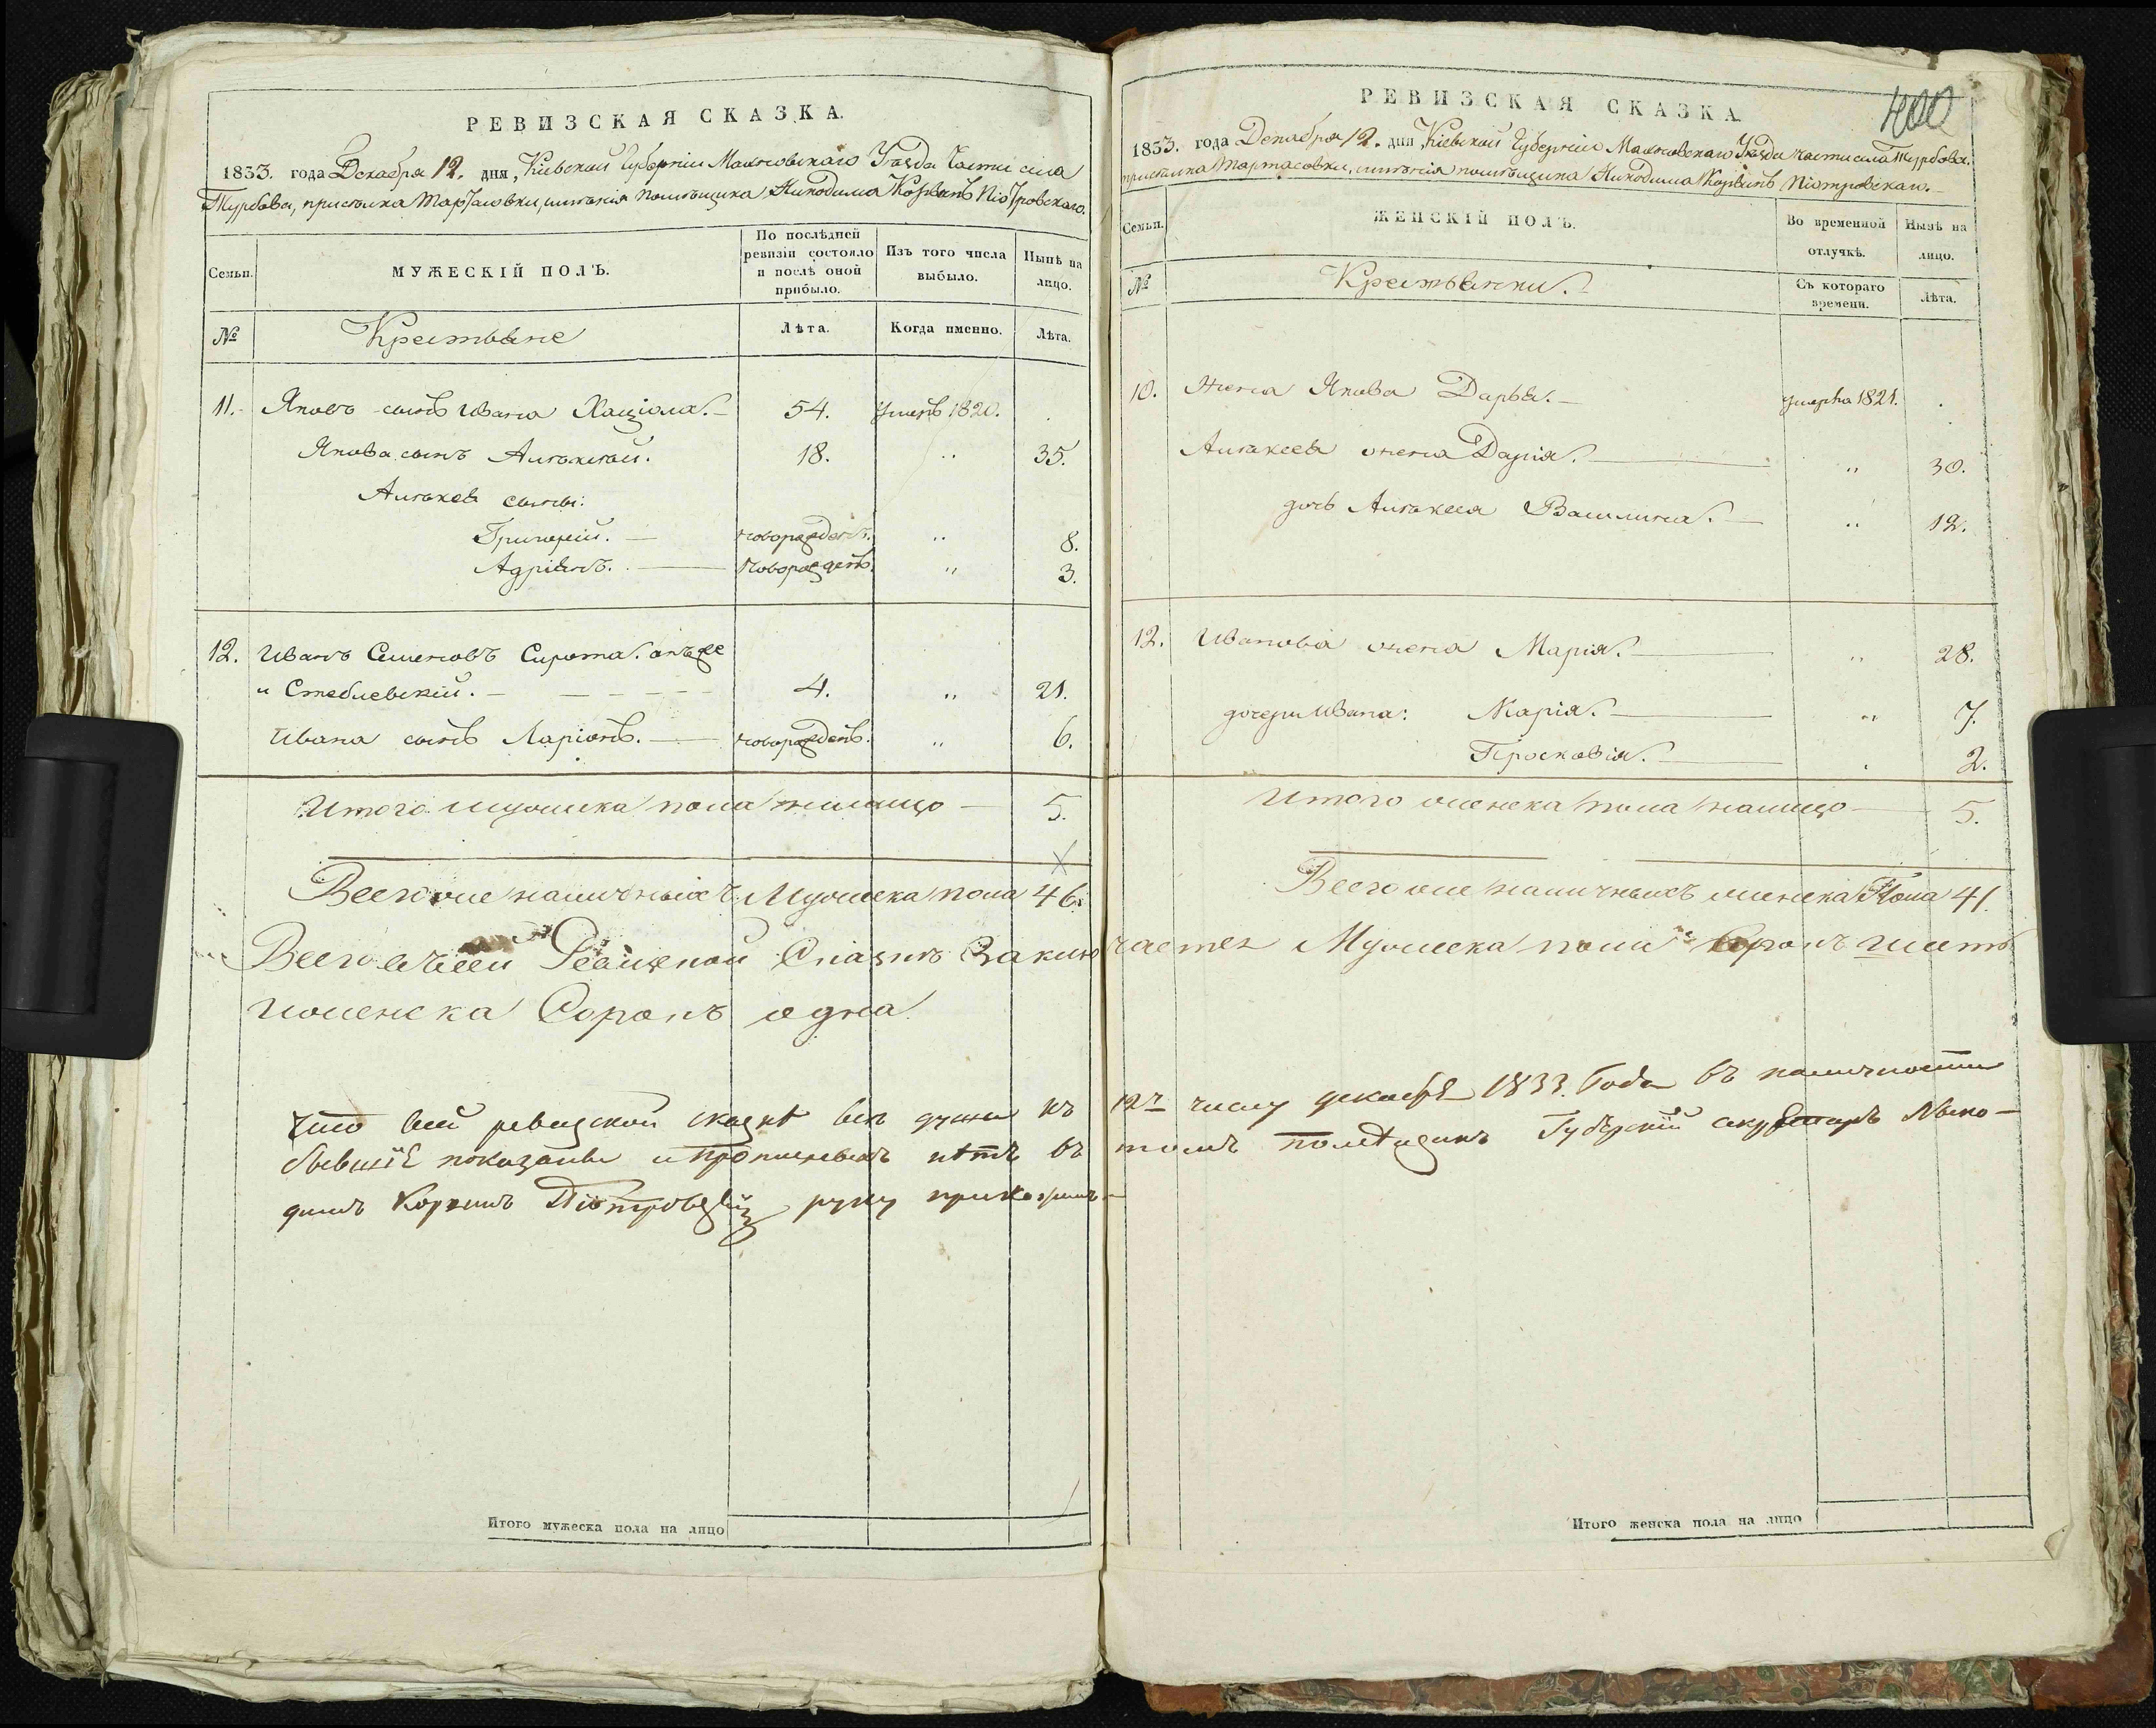 РЕВИЗСКАЯ СКАЗКА.
1833. года Декабря 12. дня, Кіевской Губерніи Махновскаго Уѣзда части села
Турбова, приселка Тартасовки, имѣнія помѣщика Никодима Корвинъ Піотровскаго.
Семьи.
МУЖЕСКІЙ ПОЛЪ.
По послѣдней ревизіи состояло и послѣ оной прибыло.
Изъ того числа выбыло.
Нынѣ на лицо.
№
Крестьяне
Лѣта.
Когда именно.
Лѣта.
11. Яковъ сынъ Ивана Хаціола. 54. Умеръ 1820.
Якова сынъ Алѣксѣй. 18. „ 35.
Алѣксѣя сыны:
Григорій. — новорожденъ. „ 8.
Адріянъ. — новорожденъ. „ 3.
12. Иванъ Семеновъ Сирота. онъ же
и Стеблевскій. — 4. „ 21.
Ивана сынъ Ларіонъ. — новорожденъ. „ 6.
Итого мужеска пола налицо — 5.
Всего же наличныхъ Мужеска пола 46.
Всего въ сей Ревизской Сказкѣ Заклю
женска Сорокъ одна
что всей ревизской сказкѣ всѣ души къ
бывшіе показаны и прописныхъ нѣтъ въ
димъ Корвинъ Піотровскій руку приложилъ—
Итого мужеска пола на лицо
400
РЕВИЗСКАЯ СКАЗКА
1833. года Декабря 12. дня Кіевской Губерніи Махновскаго Уѣзда части села Турбова.
приселка Тартасовки, имѣнія помѣщика Никодима Корвинъ Піотровскаго.
Семьи.
ЖЕНСКІЙ ПОЛЪ.
Во временной отлучкѣ.
Нынѣ на лицо.
№
Крестьянки.
Съ котораго времени.
Лѣта.
10. Жена Якова Дарья. — умерла 1821.
Алѣксѣя жена Дарія. — „ 30.
дочь Алѣксѣя Василина. — „ 12.
12. Иванова жена Марія. — „ 28.
дочери Ивана: Марія. — „ 7.
Просковія. — 2.
Итого женска пола налицо — 5.
Всего же наличныхъ женска Пола 41.
чается Мужеска пола Сорокъ шесть
12г числу декабря 1833. Года въ наличности
томъ помѣщикъ Губерскій секретарь Нико—
Итого женска пола на лицо